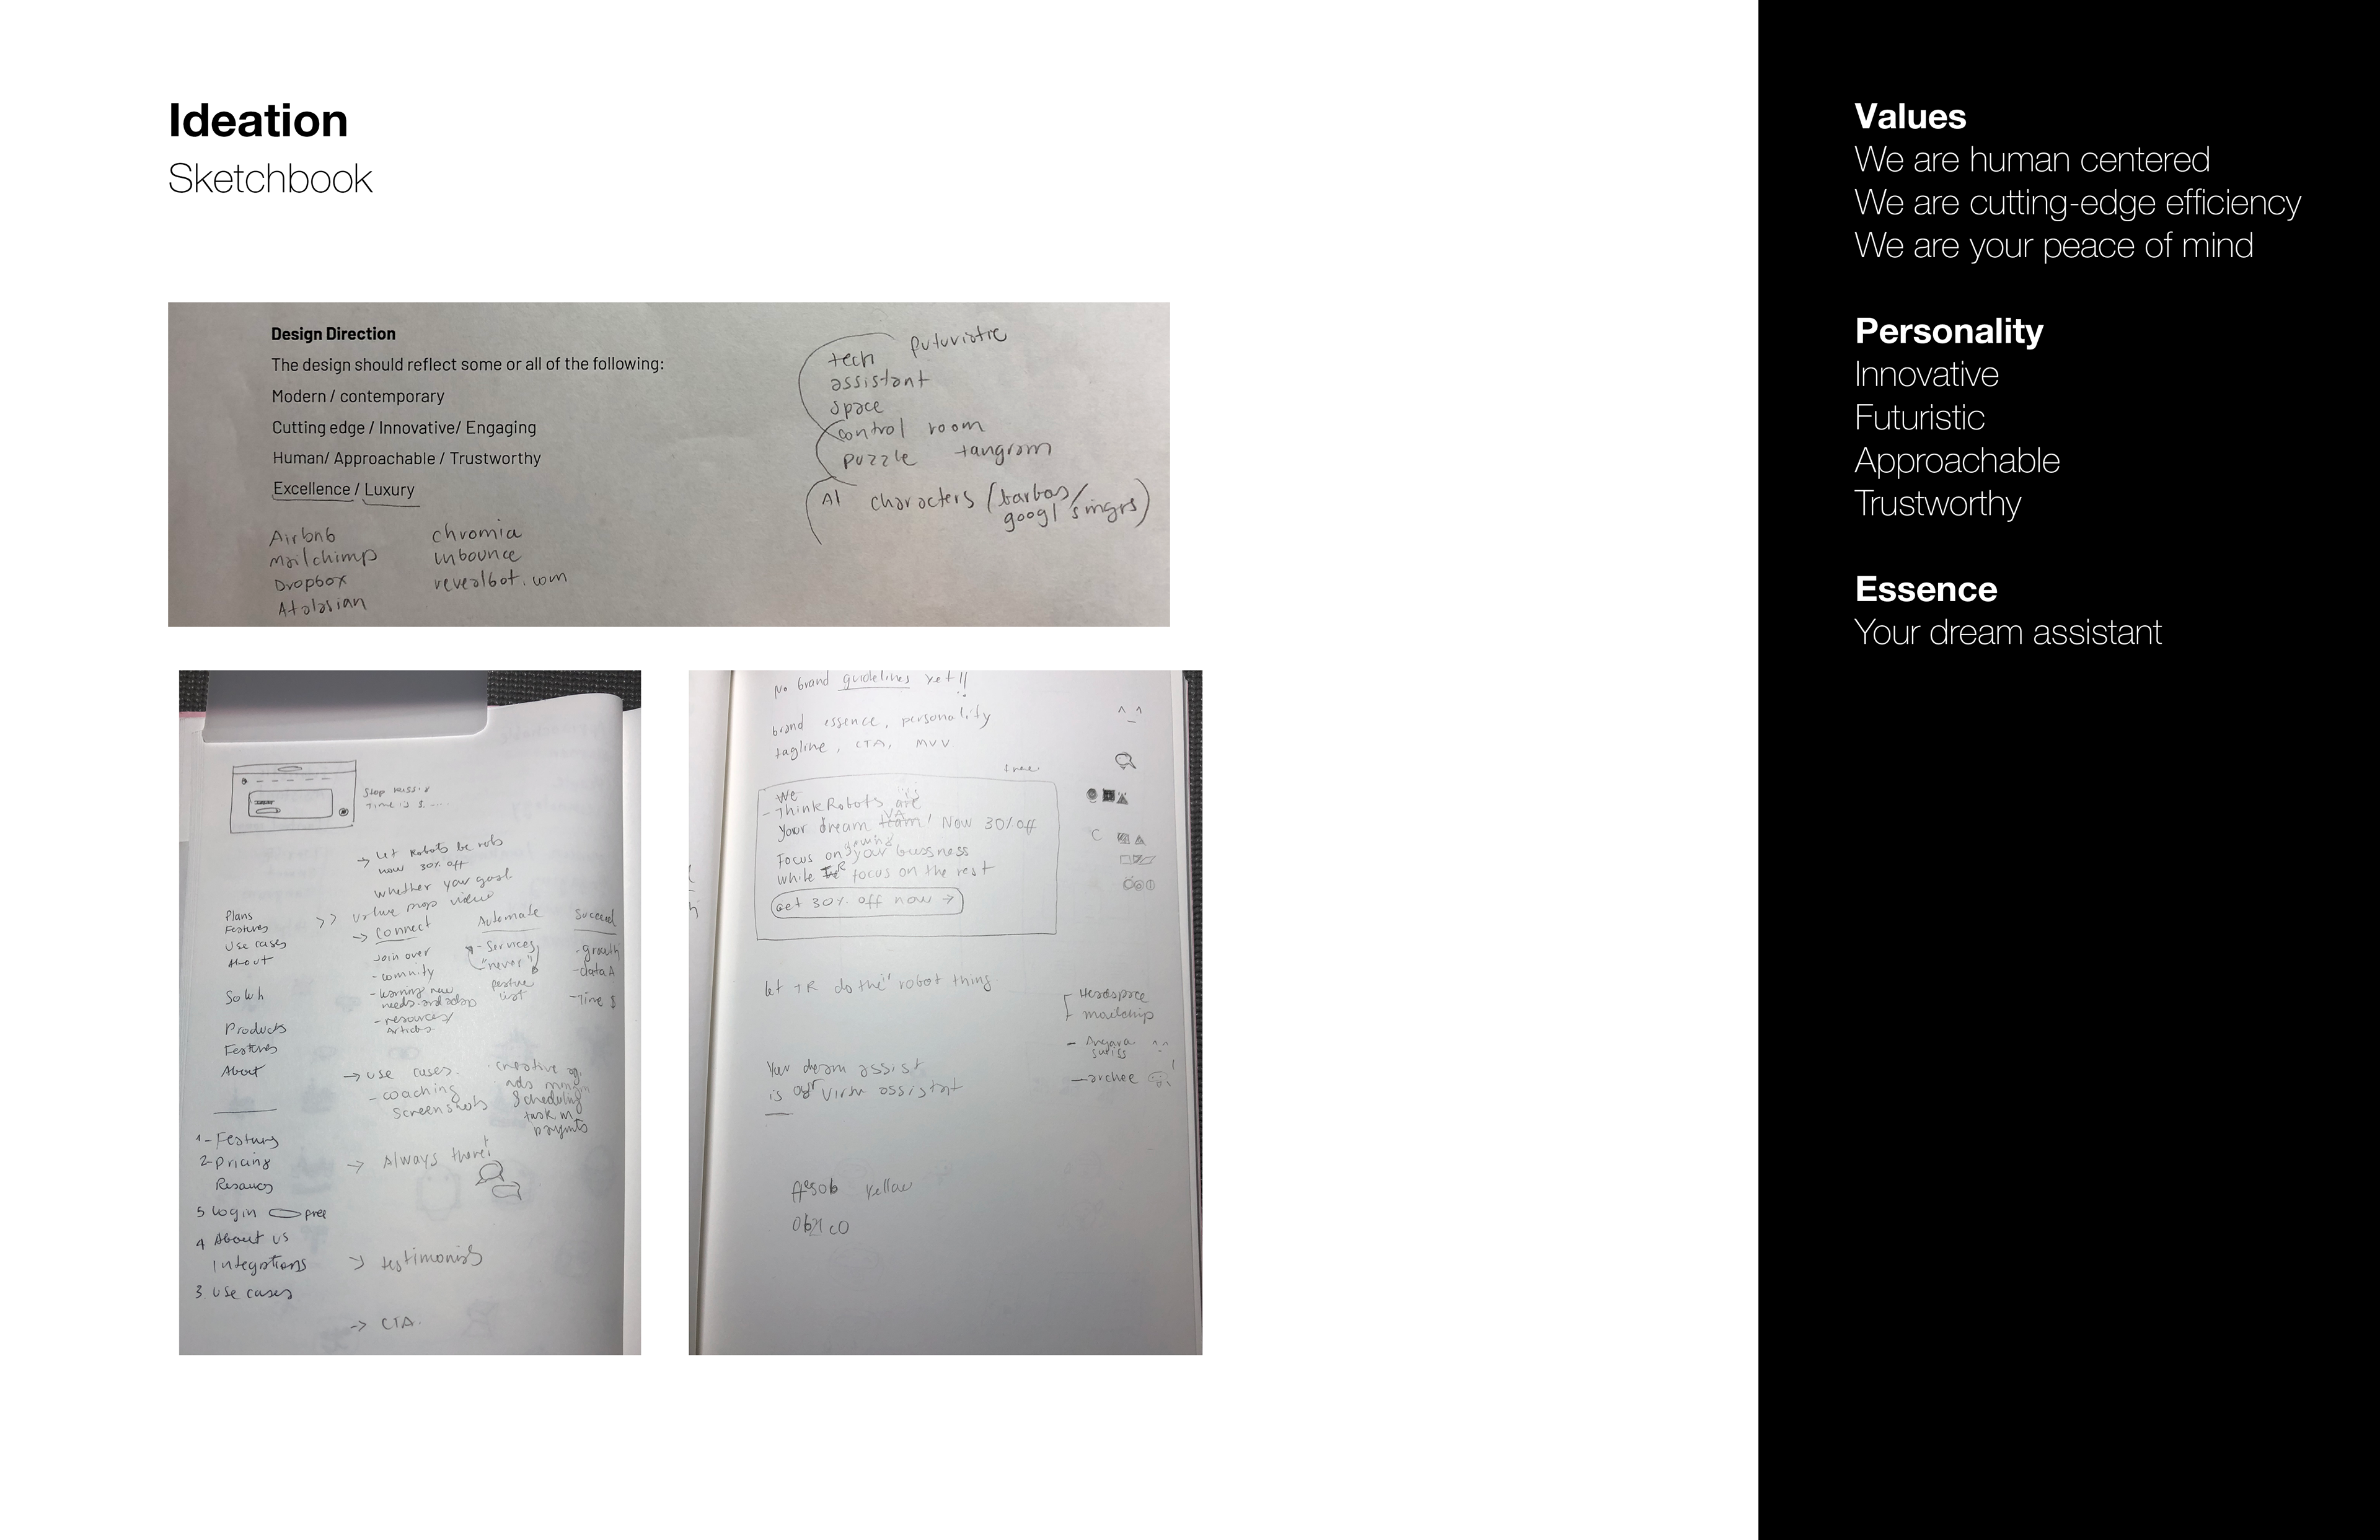 Ideation
Sketchbook
Design Direction
The design should reflect some or all of the following:
Modern / contemporary
Cutting edge / Innovative/ Engaging
Human/ Approachable / Trustworthy
Excellence / Luxury
Airbnb
mailchimp
Dropbox
Atalasian
chromia
unbounce
revealbot.com
tech futuristic
assistant
space
control room
puzzle tangram
AI characters (barbas/
googl singrs)
Stop
Time is $ ....
→ Let Robots be robs
now 30% off
whether your goal
prop video
Plans
Features
Use cases
About
Products
Features
About
→ Connect
Join over
- comnity
- learning new
needs and adap
- resources/
Articles
Automate
- Services
"never"
list
Succeed
- growth
- data A
- Time $
→ use cases.
- coaching
screenshots
creative ag.
scheduling
task m.
paymts
1- Features
2- Pricing
Resources
5 Login free
4 About us
Integrations
3 use cases
→ Always there!
→ testimonials
→ CTA.
No brand guidelines yet!!
brand essence, personality
tagline, CTA, MVV
free
We
- ThinkRobots are
Your dream team! Now 30% off
VA
Focus on your bussness
while focus on the rest
Get 30% off now →
let TR do the robot thing
Your dream assist
is our virtu assistant
Headspace
mailchip
- archee
yellow
Values
We are human centered
We are cutting-edge efficiency
We are your peace of mind
Personality
Innovative
Futuristic
Approachable
Trustworthy
Essence
Your dream assistant